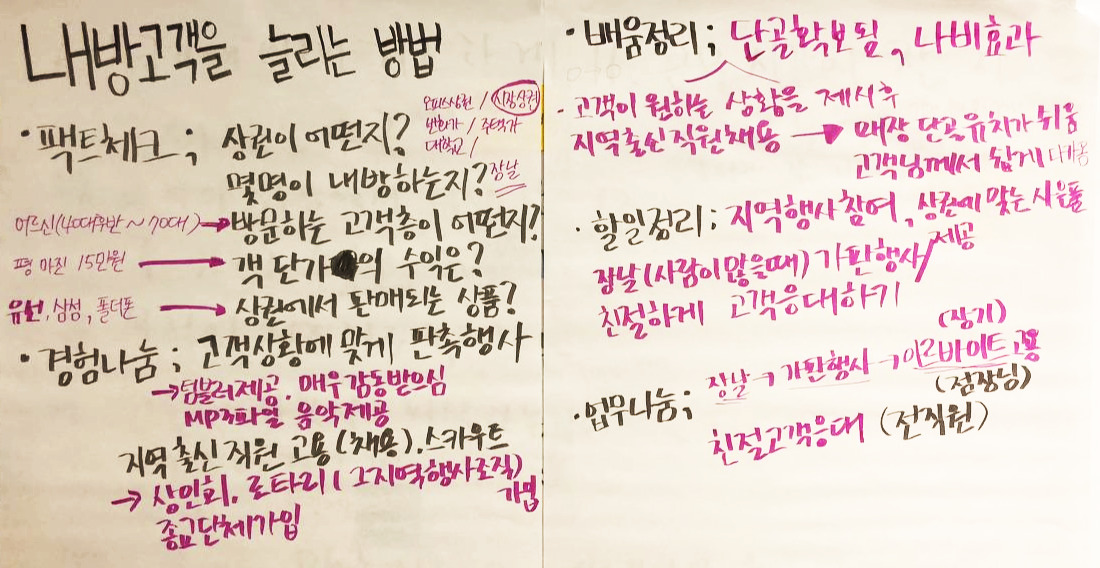 내방고객을 늘리는 방법
· 팩트체크 ; 상권이 어떤지?
오피스상권 / 시장상권
번화가 / 주택가
대학교 /
몇명이 내방하는지? 장날
어르신(40대후반 ~ 70대) → 방문하는 고객층이 어떤지?
평 마진 15만원 → 객단가의 수익은?
유선, 삼성, 폴더폰 → 상권에서 판매되는 상품?
· 경험나눔 ; 고객상황에 맞게 판촉행사
→ 텀블러제공. 매우감동받으심
MP3파일 음악제공
지역출신직원 고용(채용). 스카우트
→ 상인회, 로타리(그지역행사조직) 가입
종교단체가입
· 배움정리 ; 단골확보됨, 나비효과
· 고객이 원하는 상황을 제시후
지역출신직원채용 → 매장 단골유치가 쉬움
고객님께서 쉽게 다가옴
· 할일정리 ; 지역행사참여, 상권에 맞는 사은품 제공
장날(사람이많을때) 가판행사/
친절하게 고객응대하기
· 업무나눔 ; 장날 → 가판행사 → 아르바이트고용
(장기)
(점장님)
친절고객응대 (전직원)